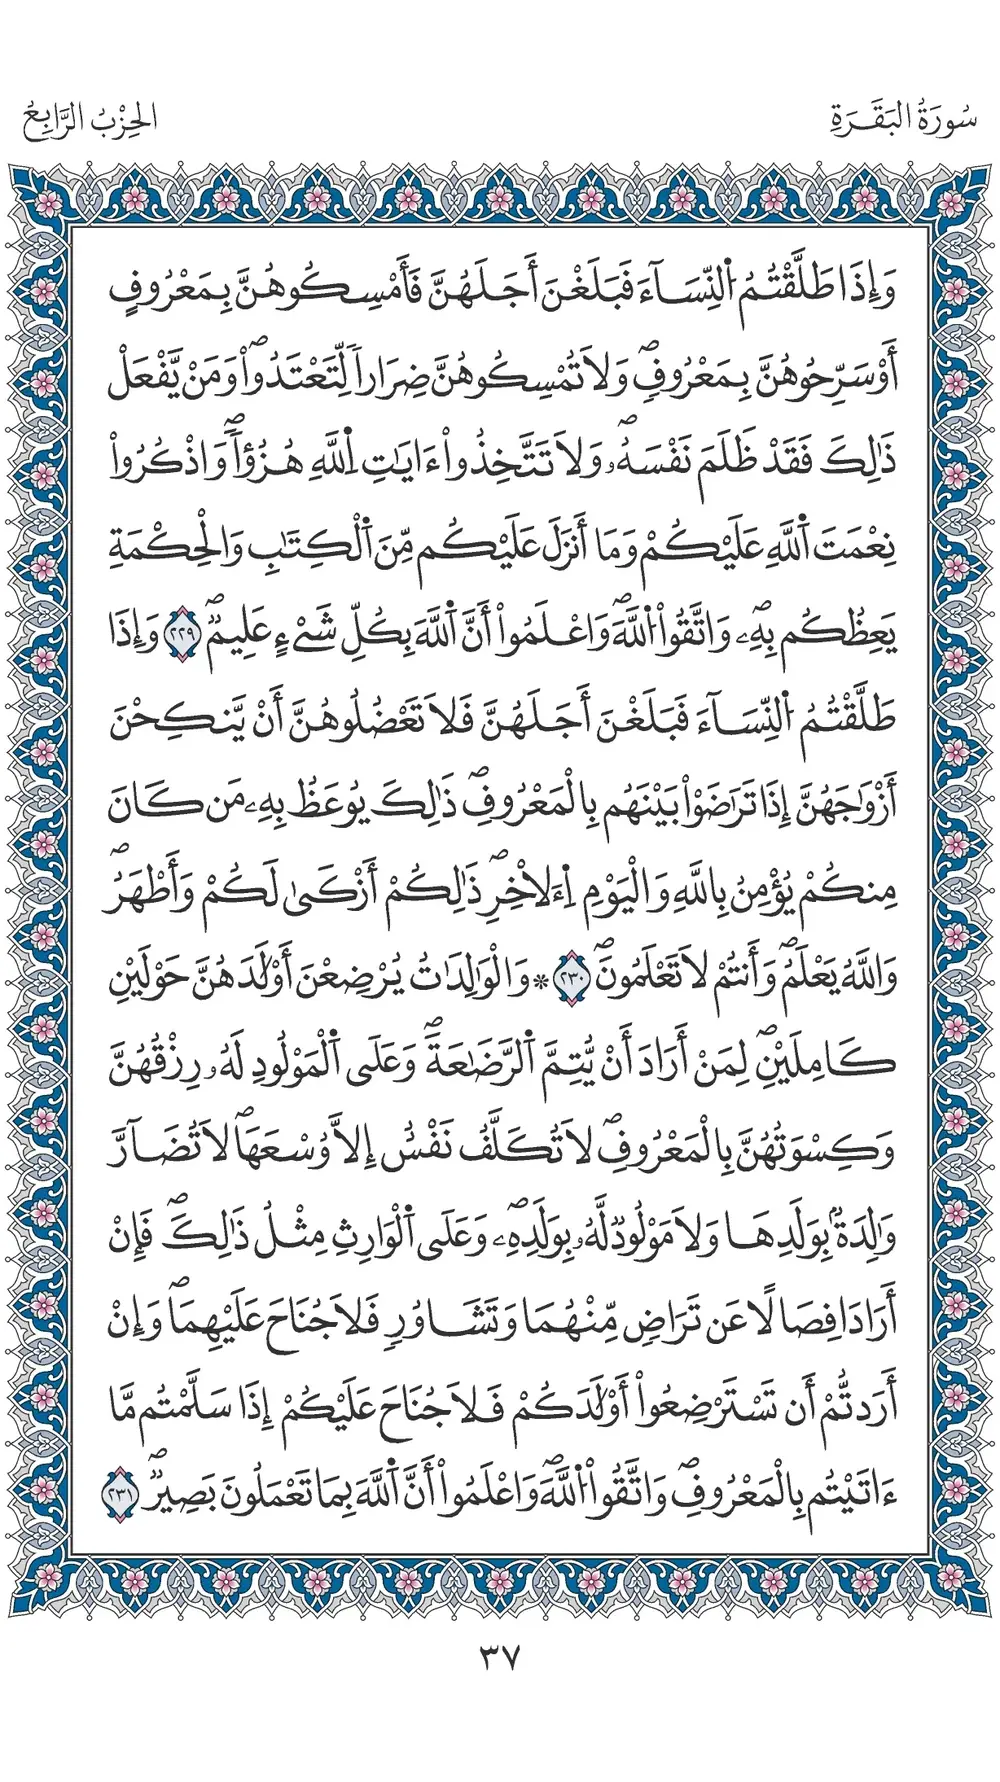 سُورَةُ البَقَرَةِ
الحِزْبُ الرَّابِعُ
وَإِذَا طَلَّقْتُمُ اُ۬لنِّسَآءَ فَبَلَغْنَ أَجَلَهُنَّ فَأَمْسِكُوهُنَّ بِمَعْرُوفٍ
أَوْ سَرِّحُوهُنَّ بِمَعْرُوفٖۖ وَلَا تُمْسِكُوهُنَّ ضِرَاراٗ لِّتَعْتَدُواْۖ وَمَنْ يَّفْعَلْ
ذَٰلِكَ فَقَدْ ظَلَمَ نَفْسَهُۥۖ وَلَا تَتَّخِذُواْ ءَايَٰتِ اِ۬للَّهِ هُزُؤاٗۖ وَاذْكُرُواْ
نِعْمَتَ اَ۬للَّهِ عَلَيْكُمْ وَمَا أَنزَلَ عَلَيْكُم مِّنَ اَ۬لْكِتَٰبِ وَالْحِكْمَةِ
يَعِظُكُم بِهِۦۖ وَاتَّقُواْ اُ۬للَّهَۖ وَاعْلَمُواْ أَنَّ اَ۬للَّهَ بِكُلِّ شَےْءٍ عَلِيمٞۖ ٢٢٩ وَإِذَا
طَلَّقْتُمُ اُ۬لنِّسَآءَ فَبَلَغْنَ أَجَلَهُنَّ فَلَا تَعْضُلُوهُنَّ أَنْ يَّنكِحْنَ
أَزْوَٰجَهُنَّ إِذَا تَرَٰضَوْاْ بَيْنَهُم بِالْمَعْرُوفِۖ ذَٰلِكَ يُوعَظُ بِهِۦ مَن كَانَ
مِنكُمْ يُؤْمِنُ بِاللَّهِ وَالْيَوْمِ اِ۬لَاخِرِۖ ذَٰلِكُمْ أَزْكَىٰ لَكُمْ وَأَطْهَرُۖ
وَاللَّهُ يَعْلَمُۖ وَأَنتُمْ لَا تَعْلَمُونَۖ ٢٣٠ * وَالْوَٰلِدَٰتُ يُرْضِعْنَ أَوْلَٰدَهُنَّ حَوْلَيْنِ
كَامِلَيْنِۖ لِمَنْ أَرَادَ أَنْ يُّتِمَّ اَ۬لرَّضَٰعَةَۖ وَعَلَى اَ۬لْمَوْلُودِ لَهُۥ رِزْقُهُنَّ
وَكِسْوَتُهُنَّ بِالْمَعْرُوفِۖ لَا تُكَلَّفُ نَفْسٌ إِلَّا وُسْعَهَاۖ لَا تُضَآرَّ
وَٰلِدَةُۢ بِوَلَدِهَا وَلَا مَوْلُودٞ لَّهُۥ بِوَلَدِهِۦۖ وَعَلَى اَ۬لْوَارِثِ مِثْلُ ذَٰلِكَۖ فَإِنْ
أَرَادَا فِصَالًا عَن تَرَاضٖ مِّنْهُمَا وَتَشَاوُرٖ فَلَا جُنَاحَ عَلَيْهِمَاۖ وَإِنْ
أَرَدتُّمْ أَن تَسْتَرْضِعُواْ أَوْلَٰدَكُمْ فَلَا جُنَاحَ عَلَيْكُمْ إِذَا سَلَّمْتُم مَّا
ءَاتَيْتُم بِالْمَعْرُوفِۖ وَاتَّقُواْ اُ۬للَّهَۖ وَاعْلَمُواْ أَنَّ اَ۬للَّهَ بِمَا تَعْمَلُونَ بَصِيرٞۖ ٢٣١
٣٧